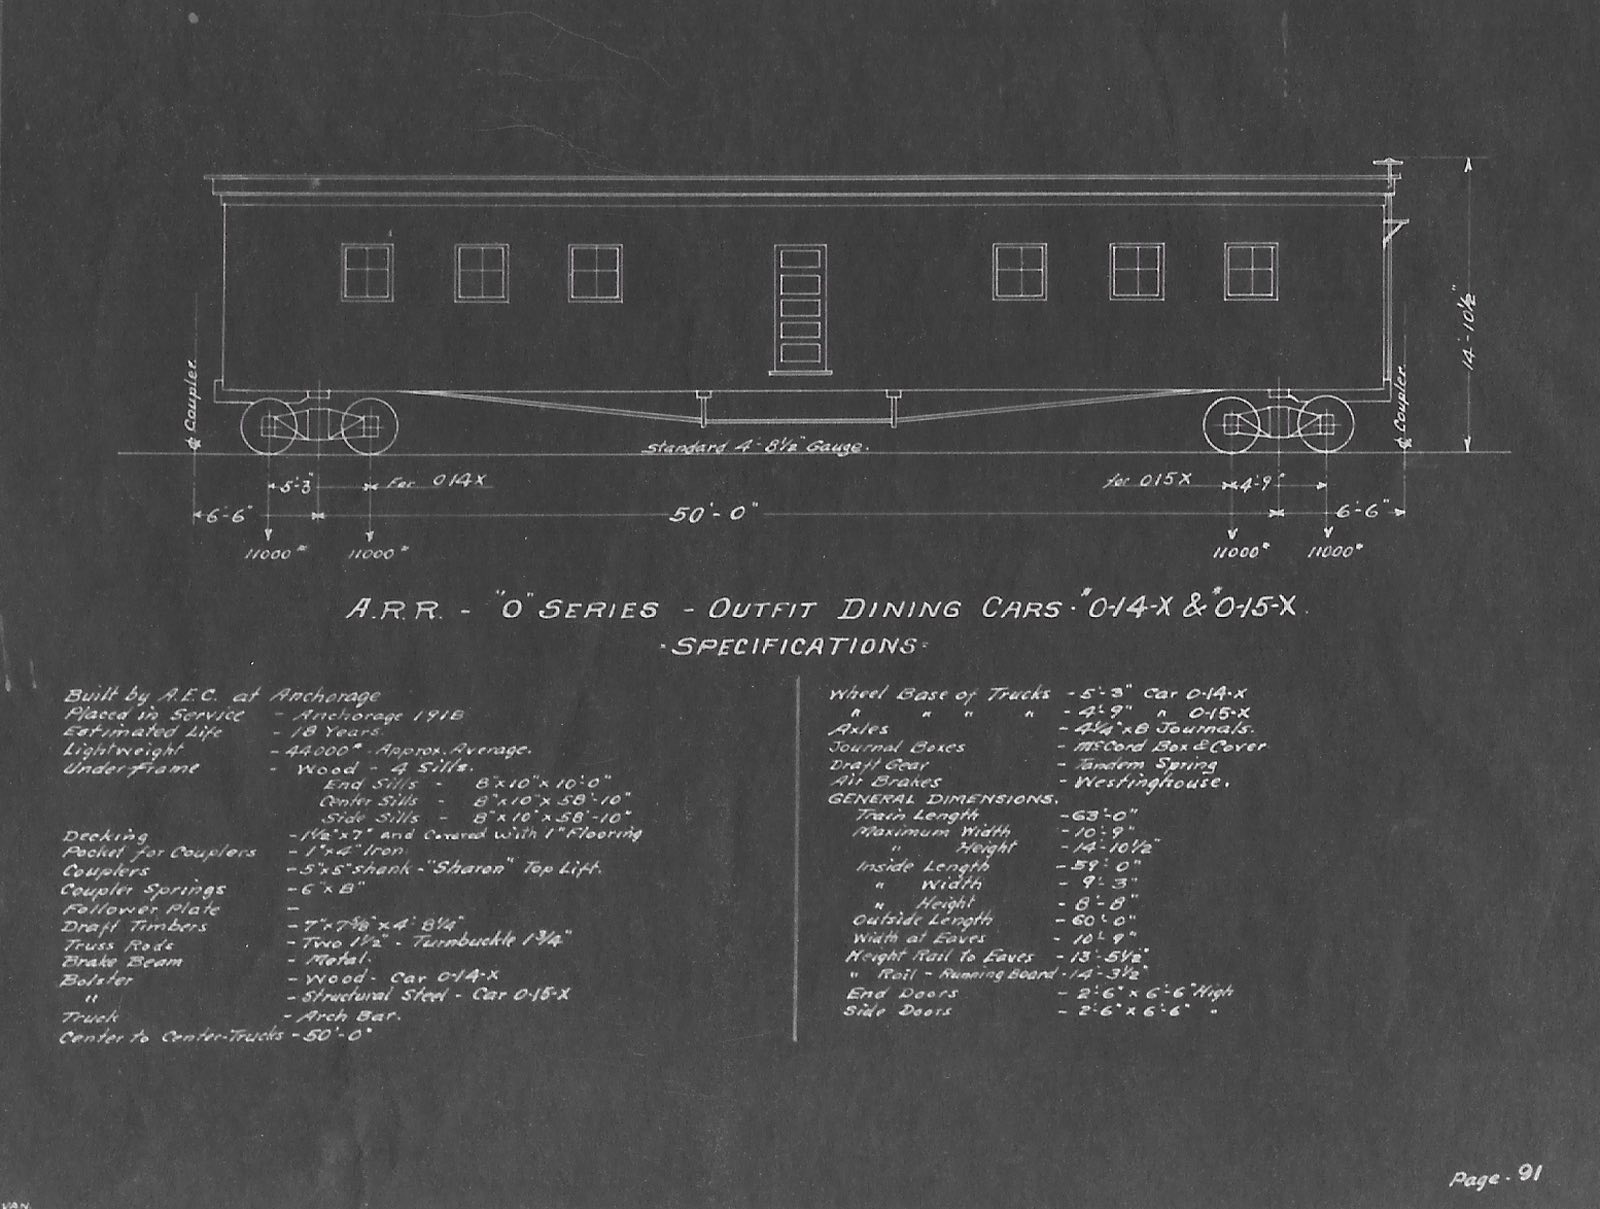 14'-10½"
℄ Coupler.
℄ Coupler.
Standard 4'-8½" Gauge.
5'-3" For 014X
for 015X 4'-9"
6'-6" 50'-0" 6'-6"
11000# 11000# 11000# 11000#
A.R.R. - "O" SERIES - OUTFIT DINING CARS. #O-14-X & #O-15-X.
-SPECIFICATIONS-
Built by A.E.C. at Anchorage
Placed in Service - Anchorage 1918
Estimated Life - 18 Years.
Lightweight - 44000# - Approx. Average.
Under-frame - Wood - 4 Sills.
End Sills - 8"x10"x10'-0"
Center Sills - 8"x10"x58'-10"
Side Sills - 8"x10"x58'-10"
Decking - 1½"x7" and Covered with 1" Flooring
Pocket for Couplers - 1"x4" Iron.
Couplers - 5"x5" shank - "Sharon" Top Lift.
Coupler Springs - 6"x8"
Follower Plate -
Draft Timbers - 7"x7⅝"x4'-8¼"
Truss Rods - Two 1½" - Turnbuckle 1¾"
Brake Beam - Metal.
Bolster - Wood - Car O-14-X
" - Structural Steel - Car O-15-X
Truck - Arch Bar.
Center to Center-Trucks - 50'-0"
Wheel Base of Trucks - 5'-3" Car O-14-X
" " " " - 4'-9" " O-15-X
Axles - 4¼"x8 Journals.
Journal Boxes - McCord Box & Cover
Draft Gear - Tandem Spring
Air Brakes - Westinghouse.
GENERAL DIMENSIONS.
Train Length - 63'-0"
Maximum Width - 10'-9"
" Height - 14'-10½"
Inside Length - 59'-0"
" Width - 9'-3"
" Height - 8'-8"
Outside Length - 60'-0"
Width at Eaves - 10'-9"
Height Rail to Eaves - 13'-5½"
" Rail - Running Board - 14'-3½"
End Doors - 2'-6" x 6'-6" High
Side Doors - 2'-6" x 6'-6" "
Page - 91
VAN.